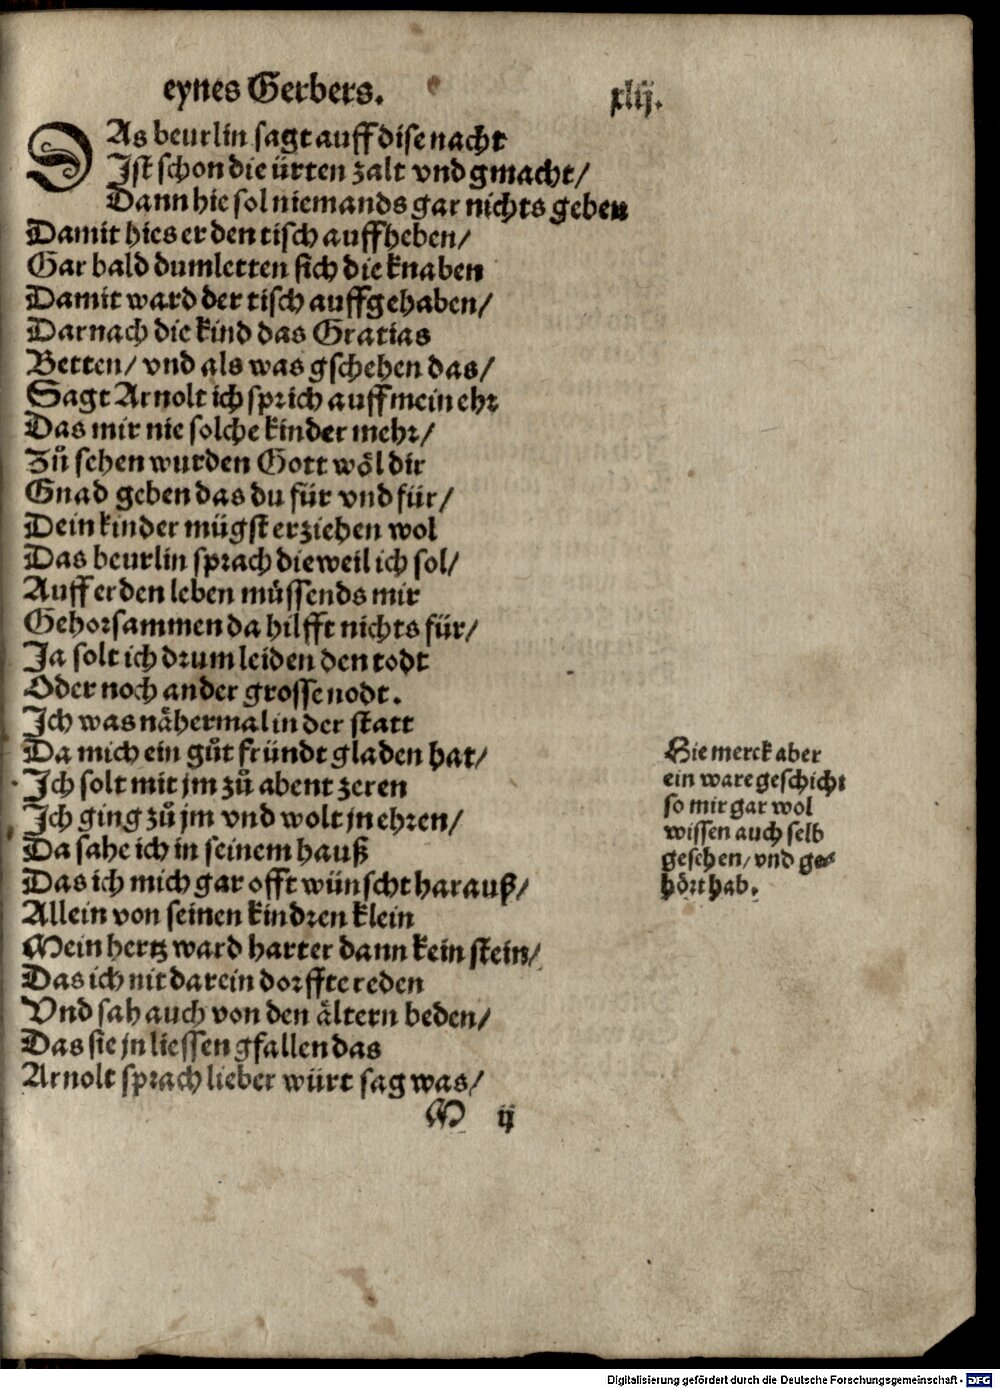 eynes Gerbers.
xlij.
DAs beurlin sagt auff dise nacht
Ist schon die ürten zalt vnd gmacht/
Dann hie sol niemands gar nichts geben
Damit hies er den tisch auffheben/
Gar bald dumletten sich die knaben
Damit ward der tisch auffgehaben/
Darnach die kind das Gratias
Betten/ vnd als was gschehen das/
Sagt Arnolt ich sprich auff mein ehr
Das mir nie solche kinder mehr/
Zů sehen wurden Gott wöl dir
Gnad geben das du für vnd für/
Dein kinder mügst erziehen wol
Das beurlin sprach dieweil ich sol/
Auff erden leben müssends mir
Gehorsammen da hilfft nichts für/
Ja solt ich drum leiden den todt
Oder noch ander grosse nodt.
Ich was nähermal in der statt
Da mich ein gůt fründt gladen hat/
Ich solt mit jm zů abent zeren
Ich ging zů jm vnd wolt jn ehren/
Da sahe ich in seinem hauß
Das ich mich gar offt wünscht harauß/
Allein von seinen kindren klein
Mein hertz ward harter dann kein stein/
Das ich nit darein dorffte reden
Vnd sah auch von den ältern beden/
Das sie jn liessen gfallen das
Arnolt sprach lieber würt sag was/
M ij
Hie merck aber
ein ware geschicht
so mir gar wol
wissen auch selb
gesehen/ vnd ge-
hört hab.
Digitalisierung gefördert durch die Deutsche Forschungsgemeinschaft - DFG